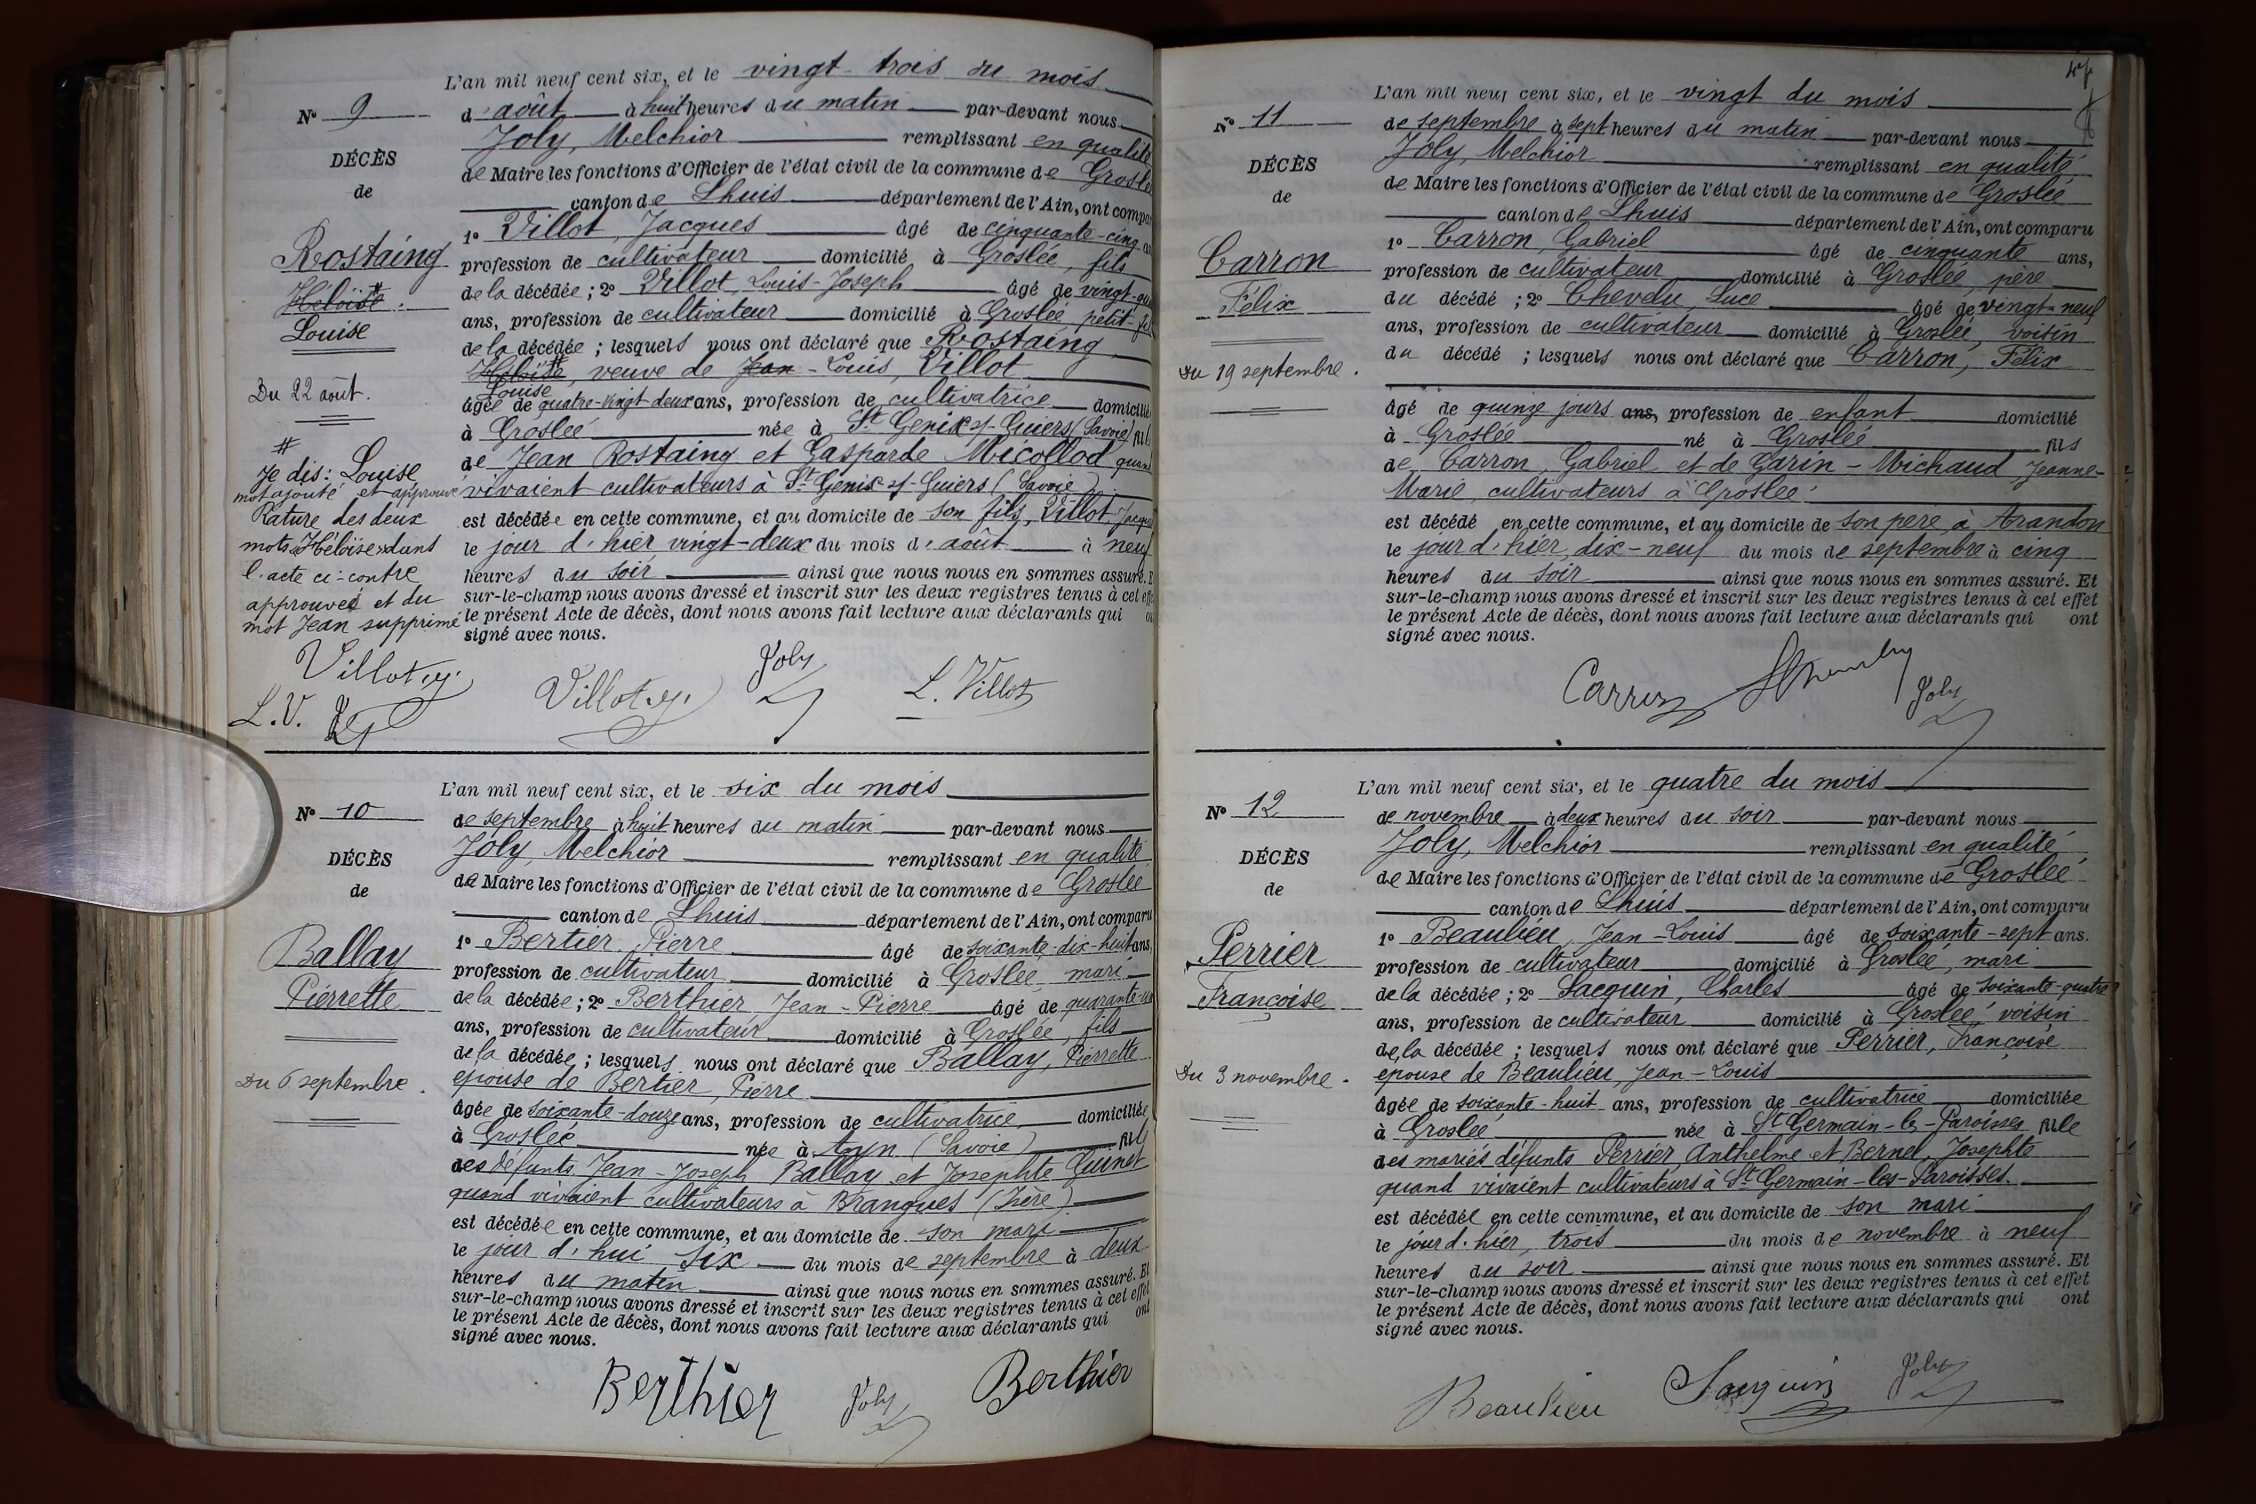 L'an mil neuf cent six, et le vingt-trois du mois
No 9
d'août à huit heures du matin par-devant nous
Joly, Melchior remplissant en qualité
DÉCÈS
de Maire les fonctions d'Officier de l'état civil de la commune de Groslée
de
canton de Lhuis département de l'Ain, ont compar
1o Villot, Jacques âgé de cinquante-cinq
Rostaing
profession de cultivateur domicilié à Groslée, fils
Héloïse #
de la décédée ; 2o Villot, Louis-Joseph âgé de vingt-
Louise
ans, profession de cultivateur domicilié à Groslée petit-fils
de la décédée ; lesquels nous ont déclaré que Rostaing
Héloïse #, veuve de Jean-Louis, Villot
Louise
Du 22 août.
âgée de quatre-vingt deux ans, profession de cultivatrice domicilié
à Groslée née à St Genix s/ Guiers (Savoie) fille
#
Je dis : Louise
de Jean Rostaing et Gasparde Micollod quand
mot ajouté et approuvé
vivaient cultivateurs à St Genix s/ Guiers (Savoie)
Rature des deux
est décédée en cette commune, et au domicile de son fils, Villot Jacques
mots « Héloïse » dans
le jour d'hier, vingt-deux du mois d'août à neuf
l'acte ci-contre
heures du soir ainsi que nous nous en sommes assuré. E
approuvés et du
sur-le-champ nous avons dressé et inscrit sur les deux registres tenus à cet effe
mot Jean supprimé
le présent Acte de décès, dont nous avons fait lecture aux déclarants qui o
signé avec nous.
Villot
L. V.
Villot
Joly
L. Villot
L'an mil neuf cent six, et le six du mois
No 10
de septembre à huit heures du matin par-devant nous
Joly, Melchior remplissant en qualité
DÉCÈS
de Maire les fonctions d'Officier de l'état civil de la commune de Groslée
de
canton de Lhuis département de l'Ain, ont comparu
Ballay
1o Bertier, Pierre âgé de soixante-dix-huit ans,
profession de cultivateur domicilié à Groslée, mari
Pierrette
de la décédée ; 2o Berthier Jean-Pierre âgé de quarante-un
ans, profession de cultivateur domicilié à Groslée, fils
de la décédée ; lesquels nous ont déclaré que Ballay, Pierrette
Du 6 septembre.
épouse de Bertier, Pierre
âgée de soixante-douze ans, profession de cultivatrice domiciliée
à Groslée née à Ayn (Savoie) fille
des défunts Jean-Joseph Ballay et Josephte Guinet
quand vivaient cultivateurs à Brangues (Isère)
est décédée en cette commune, et au domicile de son mari
le jour d'hui six du mois de septembre à deux
heures du matin ainsi que nous nous en sommes assuré. Et
sur-le-champ nous avons dressé et inscrit sur les deux registres tenus à cet effet
le présent Acte de décès, dont nous avons fait lecture aux déclarants qui ont
signé avec nous.
Berthier Joly Berthier
L'an mil neuf cent six, et le vingt du mois
No 11
de septembre à sept heures du matin par-devant nous
Joly, Melchior remplissant en qualité
DÉCÈS
de Maire les fonctions d'Officier de l'état civil de la commune de Groslée
de
canton de Lhuis département de l'Ain, ont comparu
1o Carron, Gabriel âgé de cinquante ans,
Carron
profession de cultivateur domicilié à Groslée, père
Félix
du décédé ; 2o Chevelu, Luce âgé de vingt-neuf
ans, profession de cultivateur domicilié à Groslée, voisin
du décédé ; lesquels nous ont déclaré que Carron, Félix
Du 19 septembre.
âgé de quinze jours ans, profession de enfant domicilié
à Groslée né à Groslée fils
de Carron, Gabriel et de Garin-Michaud, Jeanne-
Marie, cultivateurs à Groslée.
est décédé en cette commune, et au domicile de son père à Arandon
le jour d'hier, dix-neuf du mois de septembre à cinq
heures du soir ainsi que nous nous en sommes assuré. Et
sur-le-champ nous avons dressé et inscrit sur les deux registres tenus à cet effet
le présent Acte de décès, dont nous avons fait lecture aux déclarants qui ont
signé avec nous.
Carron Joly
L'an mil neuf cent six, et le quatre du mois
No 12
de novembre à deux heures du soir par-devant nous
Joly, Melchior remplissant en qualité
DÉCÈS
de Maire les fonctions d'Officier de l'état civil de la commune de Groslée
de
canton de Lhuis département de l'Ain, ont comparu
1o Beaulieu, Jean-Louis âgé de soixante-sept ans.
Perrier
profession de cultivateur domicilié à Groslée, mari
Françoise
de la décédée ; 2o Sacquin, Charles âgé de soixante-quatre
ans, profession de cultivateur domicilié à Groslée, voisin
de la décédée ; lesquels nous ont déclaré que Perrier, Françoise
Du 3 novembre.
épouse de Beaulieu, Jean-Louis
âgée de soixante-huit ans, profession de cultivatrice domiciliée
à Groslée née à St Germain-les-Paroisses fille
des mariés défunts Perrier, Anthelme et Bernel, Josephte
quand vivaient cultivateurs à St Germain-les-Paroisses.
est décédée en cette commune, et au domicile de son mari
le jour d'hier, trois du mois de novembre à neuf
heures du soir ainsi que nous nous en sommes assuré. Et
sur-le-champ nous avons dressé et inscrit sur les deux registres tenus à cet effet
le présent Acte de décès, dont nous avons fait lecture aux déclarants qui ont
signé avec nous.
Beaulieu Sacquin Joly